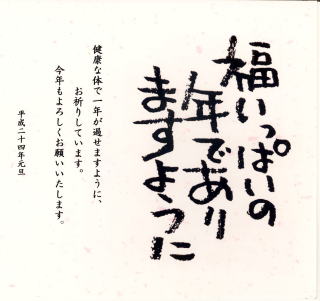 福いっぱいの
年であり
ますように
健康な体で一年が過せますように、
お祈りしています。
今年もよろしくお願いいたします。
平成二十四年元旦